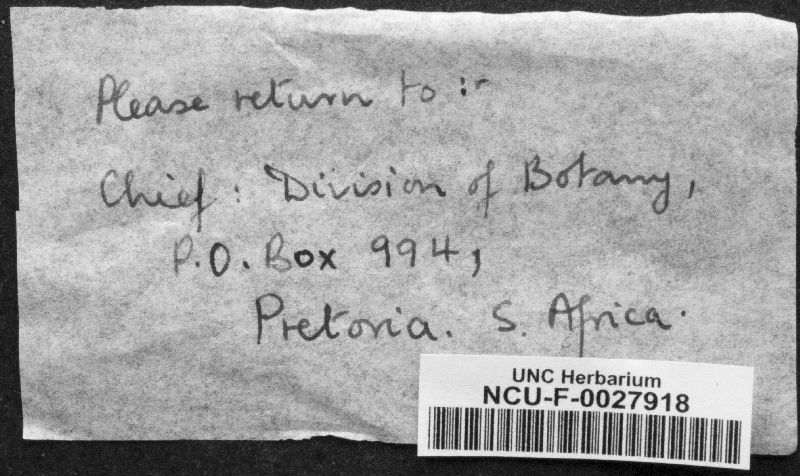 Please return to :-
Chief : Division of Botany,
P.O. Box 994,
Pretoria. S. Africa.
UNC Herbarium
NCU-F-0027918